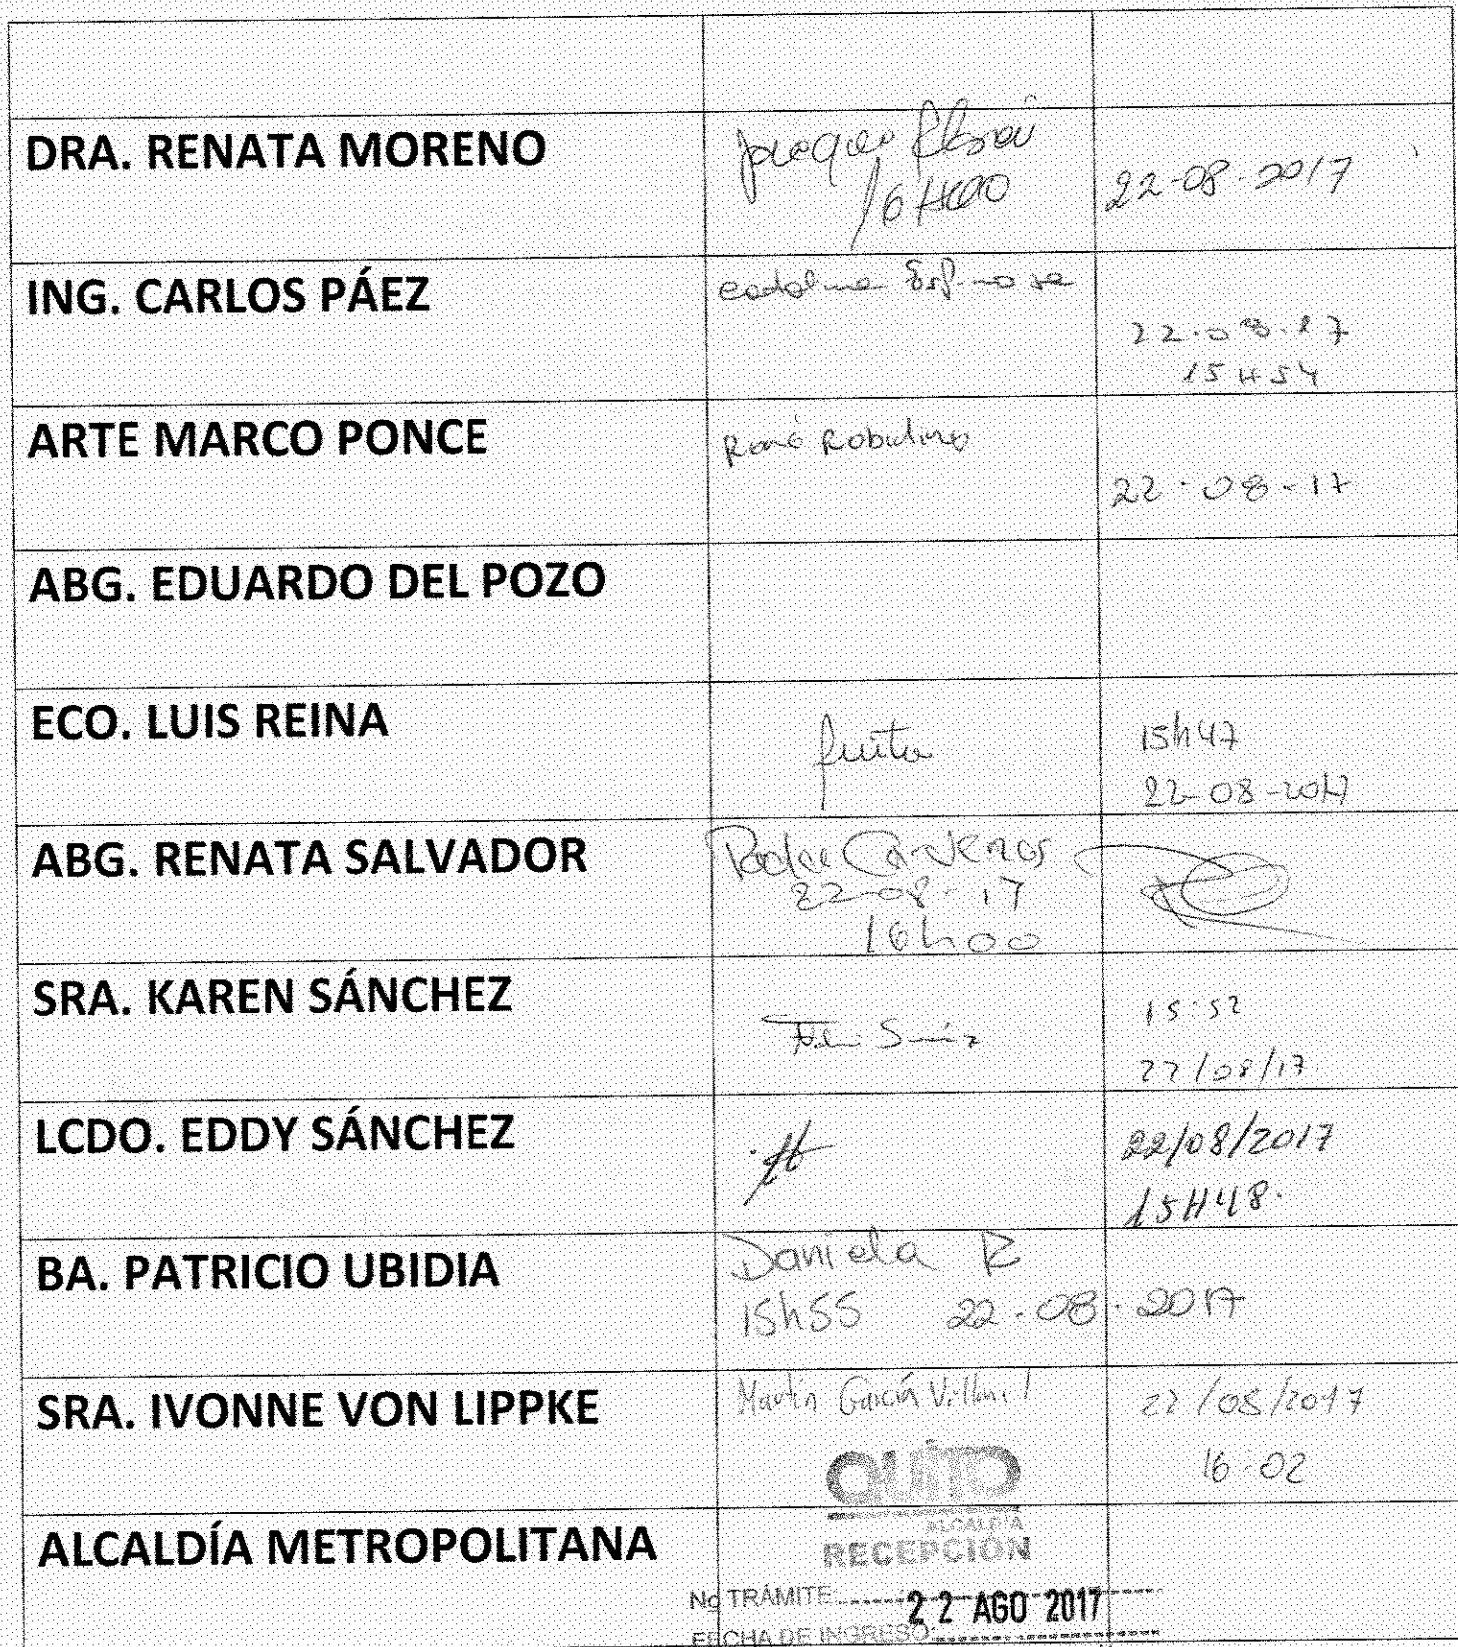 DRA. RENATA MORENO
16H00
22-08-2017
ING. CARLOS PÁEZ
Catalina Espinosa
22-08-17
15H54
ARTE MARCO PONCE
René Robalino
22-08-17
ABG. EDUARDO DEL POZO
ECO. LUIS REINA
15h47
22-08-2017
ABG. RENATA SALVADOR
Cárdenas
22-08-17
16h00
SRA. KAREN SÁNCHEZ
15:52
22/08/17
LCDO. EDDY SÁNCHEZ
22/08/2017
15H48.
BA. PATRICIO UBIDIA
Daniela R
15h55 22-08-2017
SRA. IVONNE VON LIPPKE
Martín García Villamil
22/08/2017
16-02
ALCALDÍA METROPOLITANA
QUITO
ALCALDÍA
RECEPCIÓN
No TRÁMITE:
22 AGO 2017
FECHA DE INGRESO: